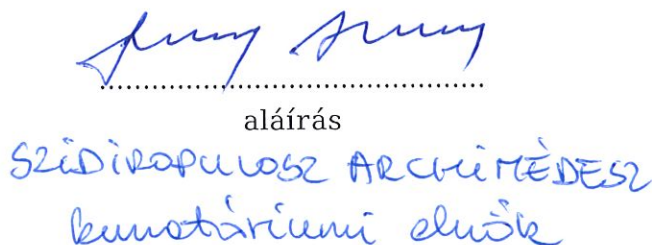 aláírás
SZIDIROPULOSZ ARCHIMÉDESZ
kuratóriumi elnök